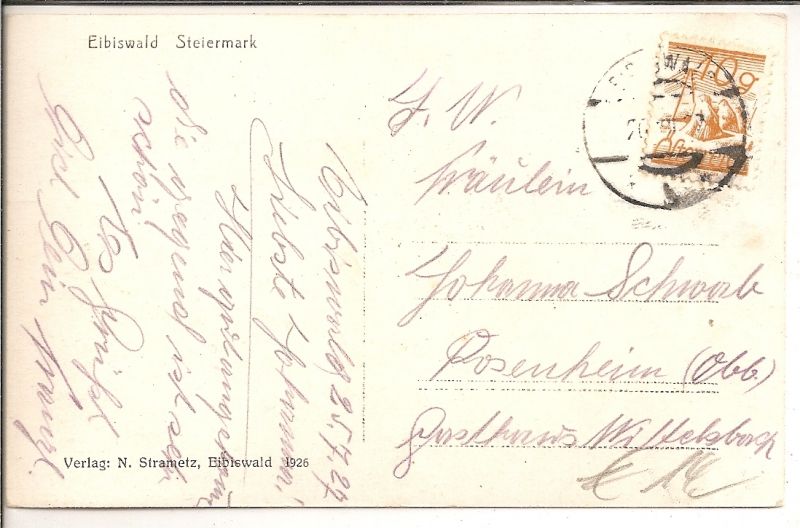 Eibiswald Steiermark
Eibiswald, 25.7.27
Liebste Johanna!
die Gegend ist sehr
schön.
Es grüßt
Dich Dein Franzl.
Verlag: N. Strametz, Eibiswald 1926
Fräulein
Johanna Schwab
Rosenheim (Obb.)
Gasthaus Wittelsbach
10g